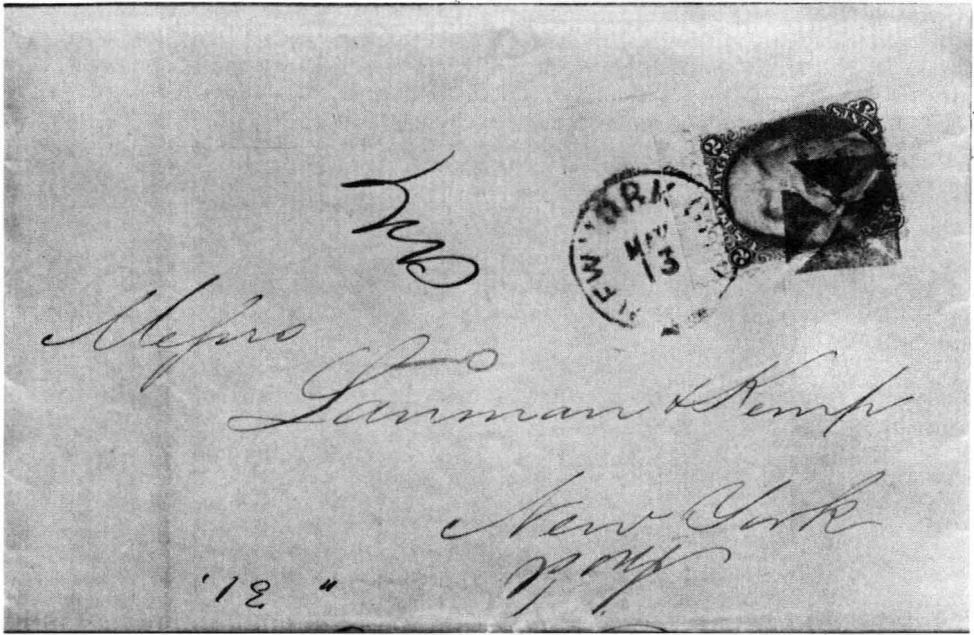 NEW YORK CITY
MAY
13
Messrs
Lanman & Kemp
New York